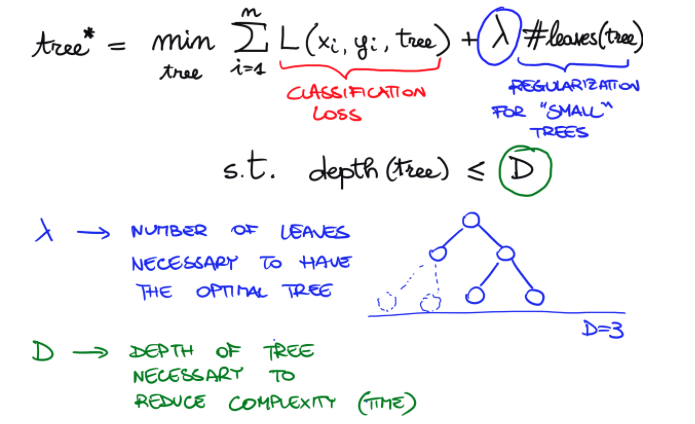 tree* = min tree Σ i=1 m L(xi, yi, tree) + λ #leaves(tree)
CLASSIFICATION
LOSS
REGULARIZATION
FOR "SMALL"
TREES
s.t. depth(tree) ≤ D
λ → NUMBER OF LEAVES
NECESSARY TO HAVE
THE OPTIMAL TREE
D=3
D → DEPTH OF TREE
NECESSARY TO
REDUCE COMPLEXITY (TIME)